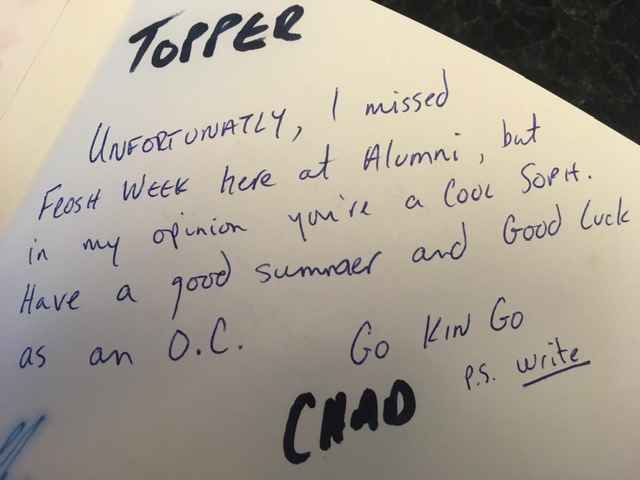 TOPPER
UNFORTUNATLY, I missed
FROSH WEEK here at Alumni, but
in my opinion you're a COOL SOPH.
Have a good summer and Good Luck
as an O.C. GO KIN GO
P.S. write
CHAD